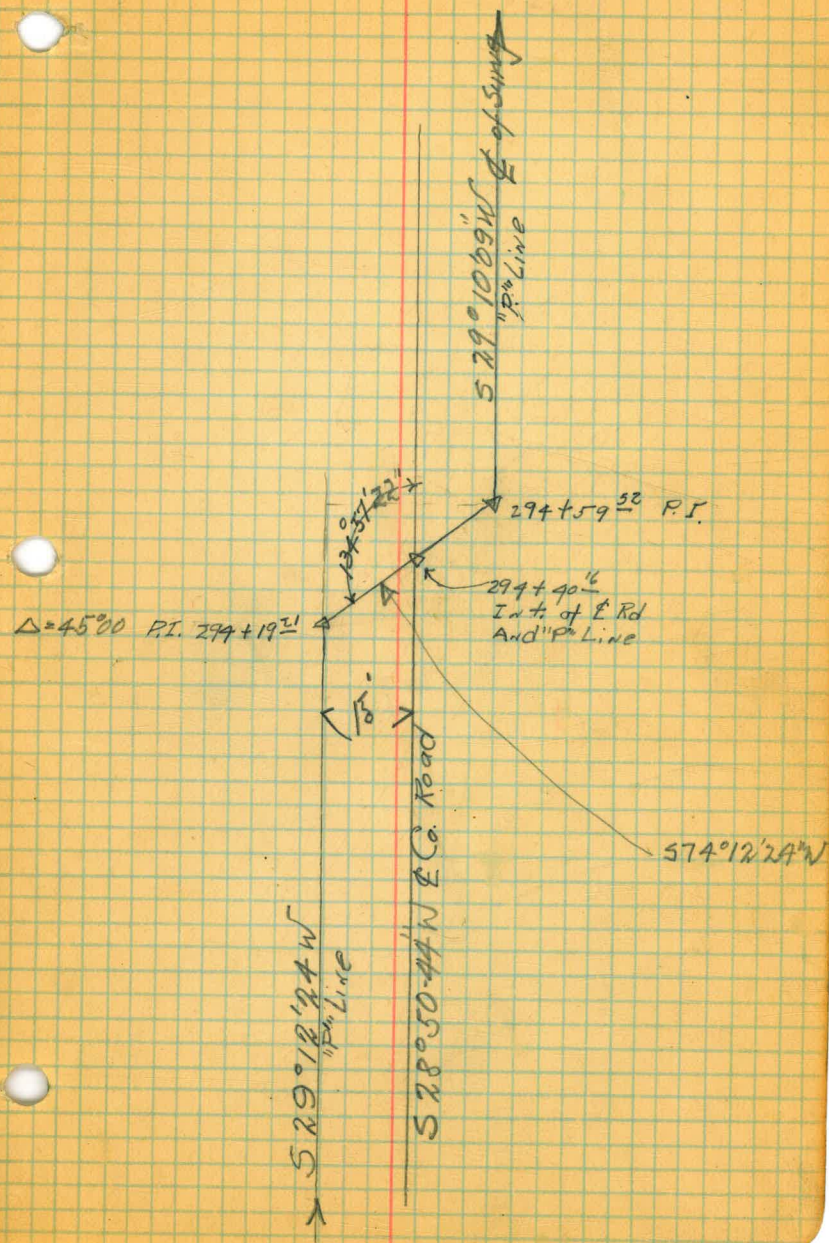 S 29°10'09"W ℄ of Survey
"P" Line
134°37'22"
294+59 52 P.I.
294+40 16
Int. of ℄ Rd
And "P" Line
Δ=45°00 P.I. 294+19 21
15'
S74°12'24"W
S 29°12'24 W
"P" Line
S 28°50-44" W ℄ Co. Road